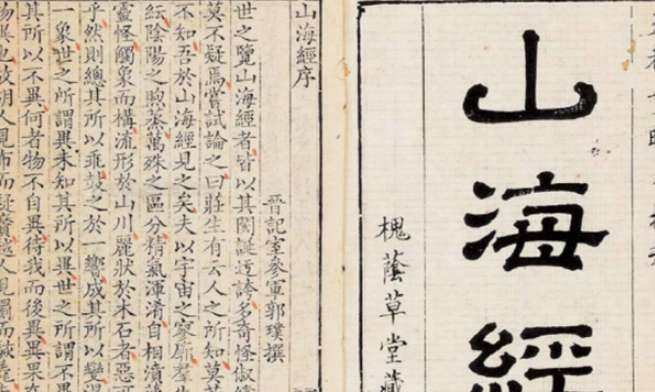 山海經
槐蔭草堂藏
山海經序
晉記室參軍郭璞撰
世之覽山海經者皆以其閎誕迂誇多奇怪俶儻
莫不疑焉嘗試論之曰莊生有云人之所知莫若
不知吾於山海經見之矣夫以宇宙之寥廓羣生
紜陰陽之煦蒸萬殊之區分精氣渾淆自相濆薄
靈怪觸象而構流形於山川麗狀於木石者惡可
乎然則總其所以乖鼓之於一響成其所以變混
一象世之所謂異未知其所以異世之所謂不異
其所以不異何者物不自異待我而後異異果在
物異也故胡人見布而疑黂越人見罽而駭毳